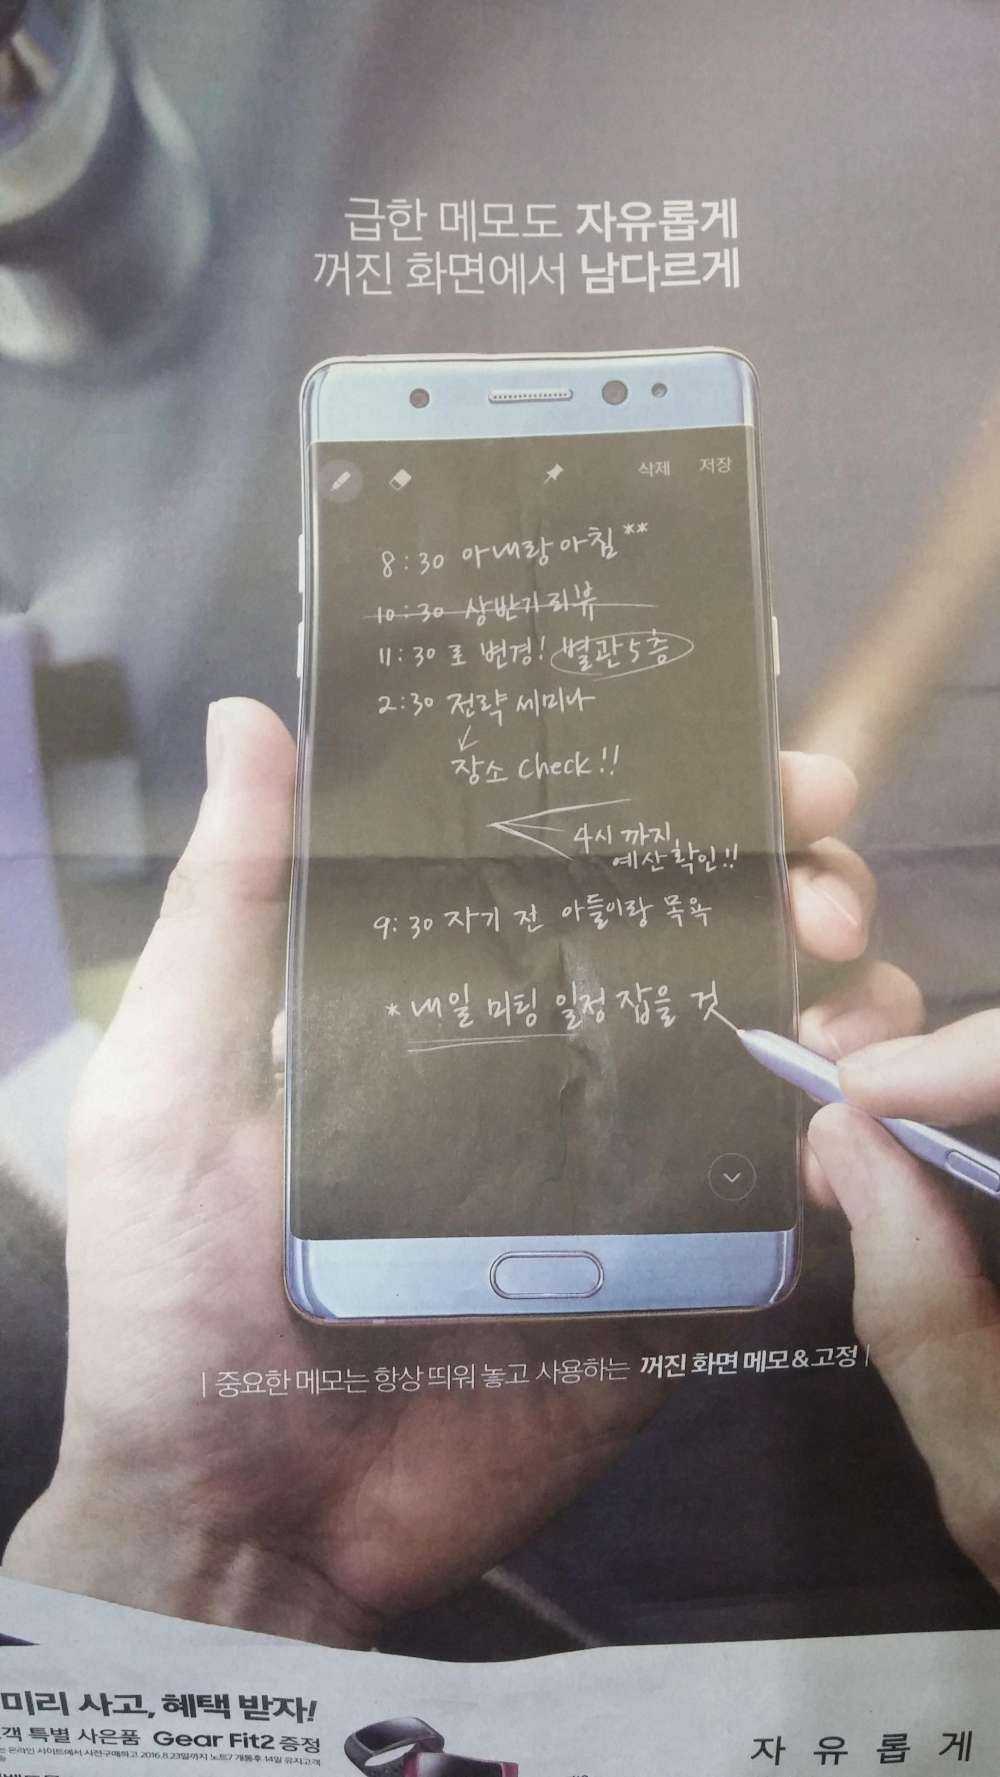 급한 메모도 자유롭게
꺼진 화면에서 남다르게
삭제 저장
8:30 아내랑 아침**
10:30 상반기 리뷰
11:30로 변경! 별관 5층
2:30 전략 세미나
장소 check!!
4시까지
예산 확인!!
9:30 자기 전 아들이랑 목욕
* 내일 미팅 일정 잡을 것
| 중요한 메모는 항상 띄워 놓고 사용하는 꺼진 화면 메모&고정 |
미리 사고, 혜택 받자!
객 특별 사은품 Gear Fit2 증정
온라인 사이트에서 사전구매하고 2016.8.23일까지 노트7 개통후 14일 유지고객
자유롭게